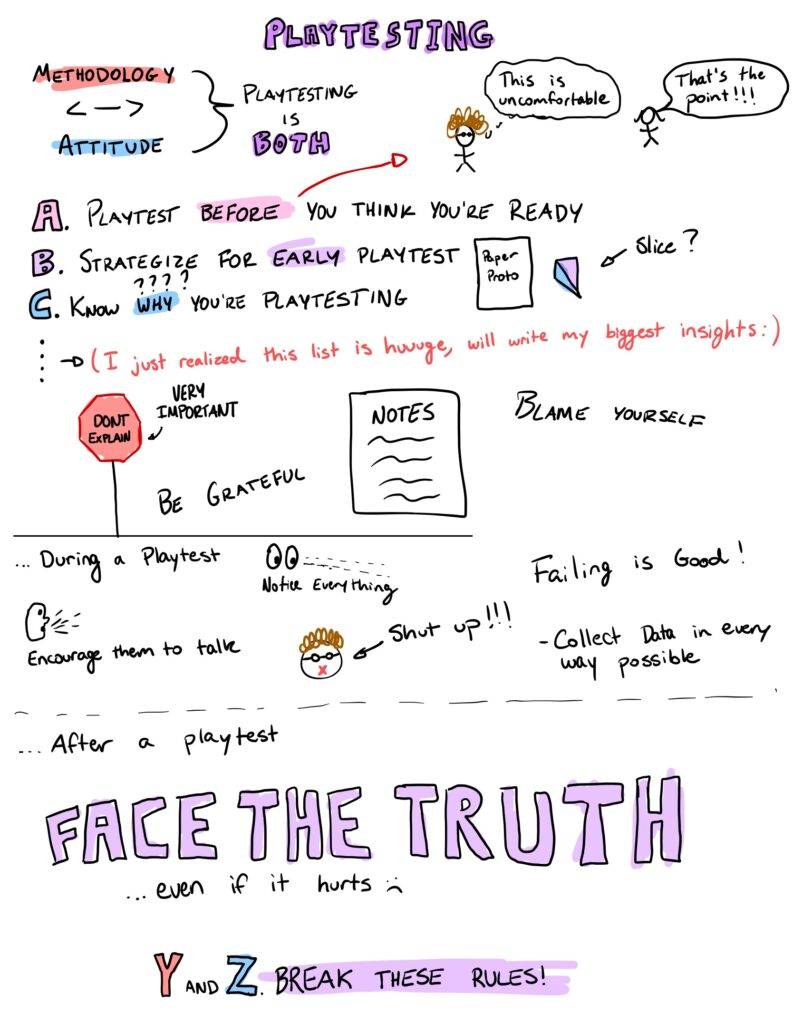 PLAYTESTING
METHODOLOGY
<—>
ATTITUDE
PLAYTESTING
IS
BOTH
This is
uncomfortable
That's the
point!!!
A. PLAYTEST BEFORE YOU THINK YOU'RE READY
B. STRATEGIZE FOR EARLY PLAYTEST
Paper
Proto
Slice?
????
C. KNOW WHY YOU'RE PLAYTESTING
(I just realized this list is huuuge, will write my biggest insights:)
DONT
EXPLAIN
VERY
IMPORTANT
BE GRATEFUL
NOTES
BLAME YOURSELF
... During a Playtest
Notice Everything
Failing is Good!
Encourage them to talk
Shut up!!!
- Collect Data in every
way possible
... After a playtest
FACE THE TRUTH
... even if it hurts :(
Y AND Z. BREAK THESE RULES!